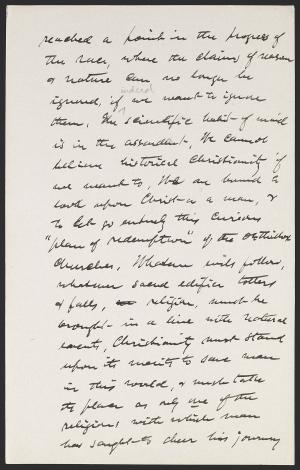 reached a point in the progress of
the race, where the claims of reason
& nature can no longer be
indeed
ignored, if we want to ignore
them. The scientific habit of mind
is in the ascendant. We cannot
believe historical Christianity if
we want to. We are bound to
look upon Christ as a man, &
to let go entirely this curious
"plan of redemption" of the orthodox
churches. Whatever evils follow,
whatever sacred edifice totters
& falls, religion must be
brought in a line with natural
events, Christianity must stand
upon its merits to save man
in this world, & must take
its place as only one of the
religions with which man
has sought to cheer his journey